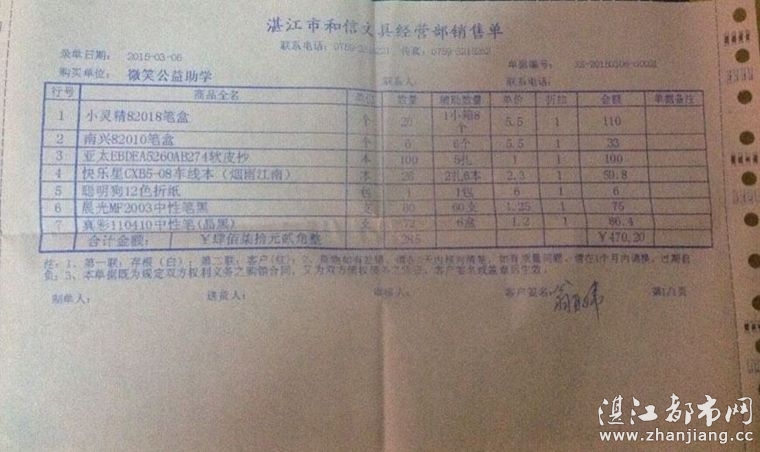 湛江市和信文具经营部销售单
录单日期： 2015-03-06
单据编号：
购买单位： 微笑公益助学 联系人： 联系电话：
行号 商品全名 单位 数量 辅助数量 单价 折扣 金额 单据备注
1 小灵精82018笔盒 个 20 1小箱8个 5.5 1 110
2 南兴82010笔盒 个 6 6个 5.5 1 33
3 亚太EBDEA5260AB274软皮抄 本 100 5扎 1 1 100
4 快乐星CXB5-08车线本（烟雨江南） 本 26 2扎6本 2.3 1 59.8
5 聪明狗12色折纸 包 1 1包 6 1 6
6 晨光MF2003中性笔黑 支 60 60支 1.25 1 75
7 真彩110410中性笔(晶黑) 支 72 6盒 1.2 1 86.4
合计金额： ￥肆佰柒拾元贰角整 285 ￥470.20
注：1、第一联：存根（白）；第二联：客户(红)；2、
负；3、本单据既为规定双方权利义务之购销合同，又为双方债权债务之凭证，客户签名或盖章后生效。
制单人： 送货人： 审核人： 客户签名： 第1/1页
湛江都市网
www.zhanjiang.cc